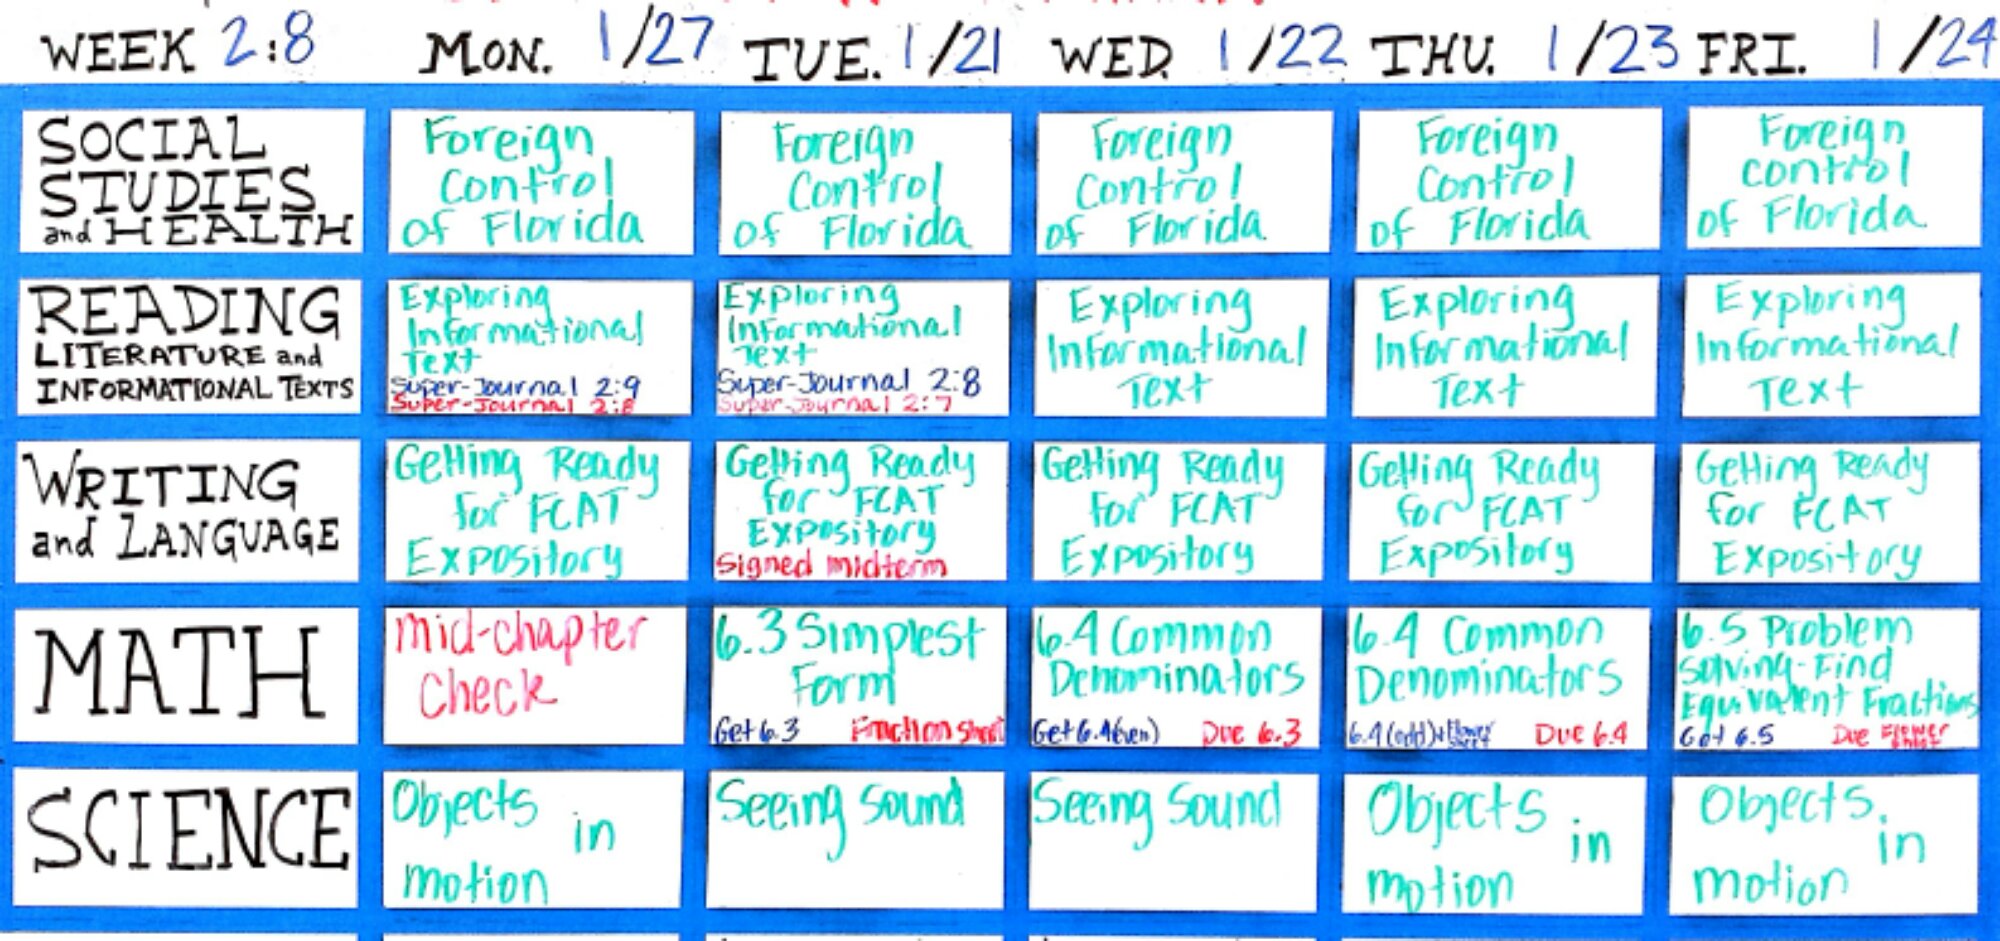 WEEK 2:8 MON. 1/27 TUE. 1/21 WED. 1/22 THU. 1/23 FRI. 1/24
SOCIAL
STUDIES
and HEALTH
Foreign
Control
of Florida
Foreign
Control
of Florida
Foreign
Control
of Florida
Foreign
Control
of Florida
Foreign
control
of Florida
READING
LITERATURE and
INFORMATIONAL TEXTS
Exploring
Informational
Text
Super-Journal 2:9
Super-Journal 2:8
Exploring
Informational
Text
Super-Journal 2:8
Super-Journal 2:7
Exploring
Informational
Text
Exploring
Informational
Text
Exploring
Informational
Text
WRITING
and LANGUAGE
Getting Ready
for FCAT
Expository
Getting Ready
for FCAT
Expository
Signed midterm
Getting Ready
for FCAT
Expository
Getting Ready
for FCAT
Expository
Getting Ready
for FCAT
Expository
MATH
Mid-chapter
Check
6.3 Simplest
Form
Get 6.3 Fraction sheet
6.4 Common
Denominators
Get 6.4(even) Due 6.3
6.4 Common
Denominators
6.4(odd)+Flower sheet Due 6.4
6.5 Problem
Solving-Find
Equivalent Fractions
Get 6.5 Due Flower
SCIENCE
Objects in
motion
Seeing Sound
Seeing Sound
Objects in
motion
Objects in
motion